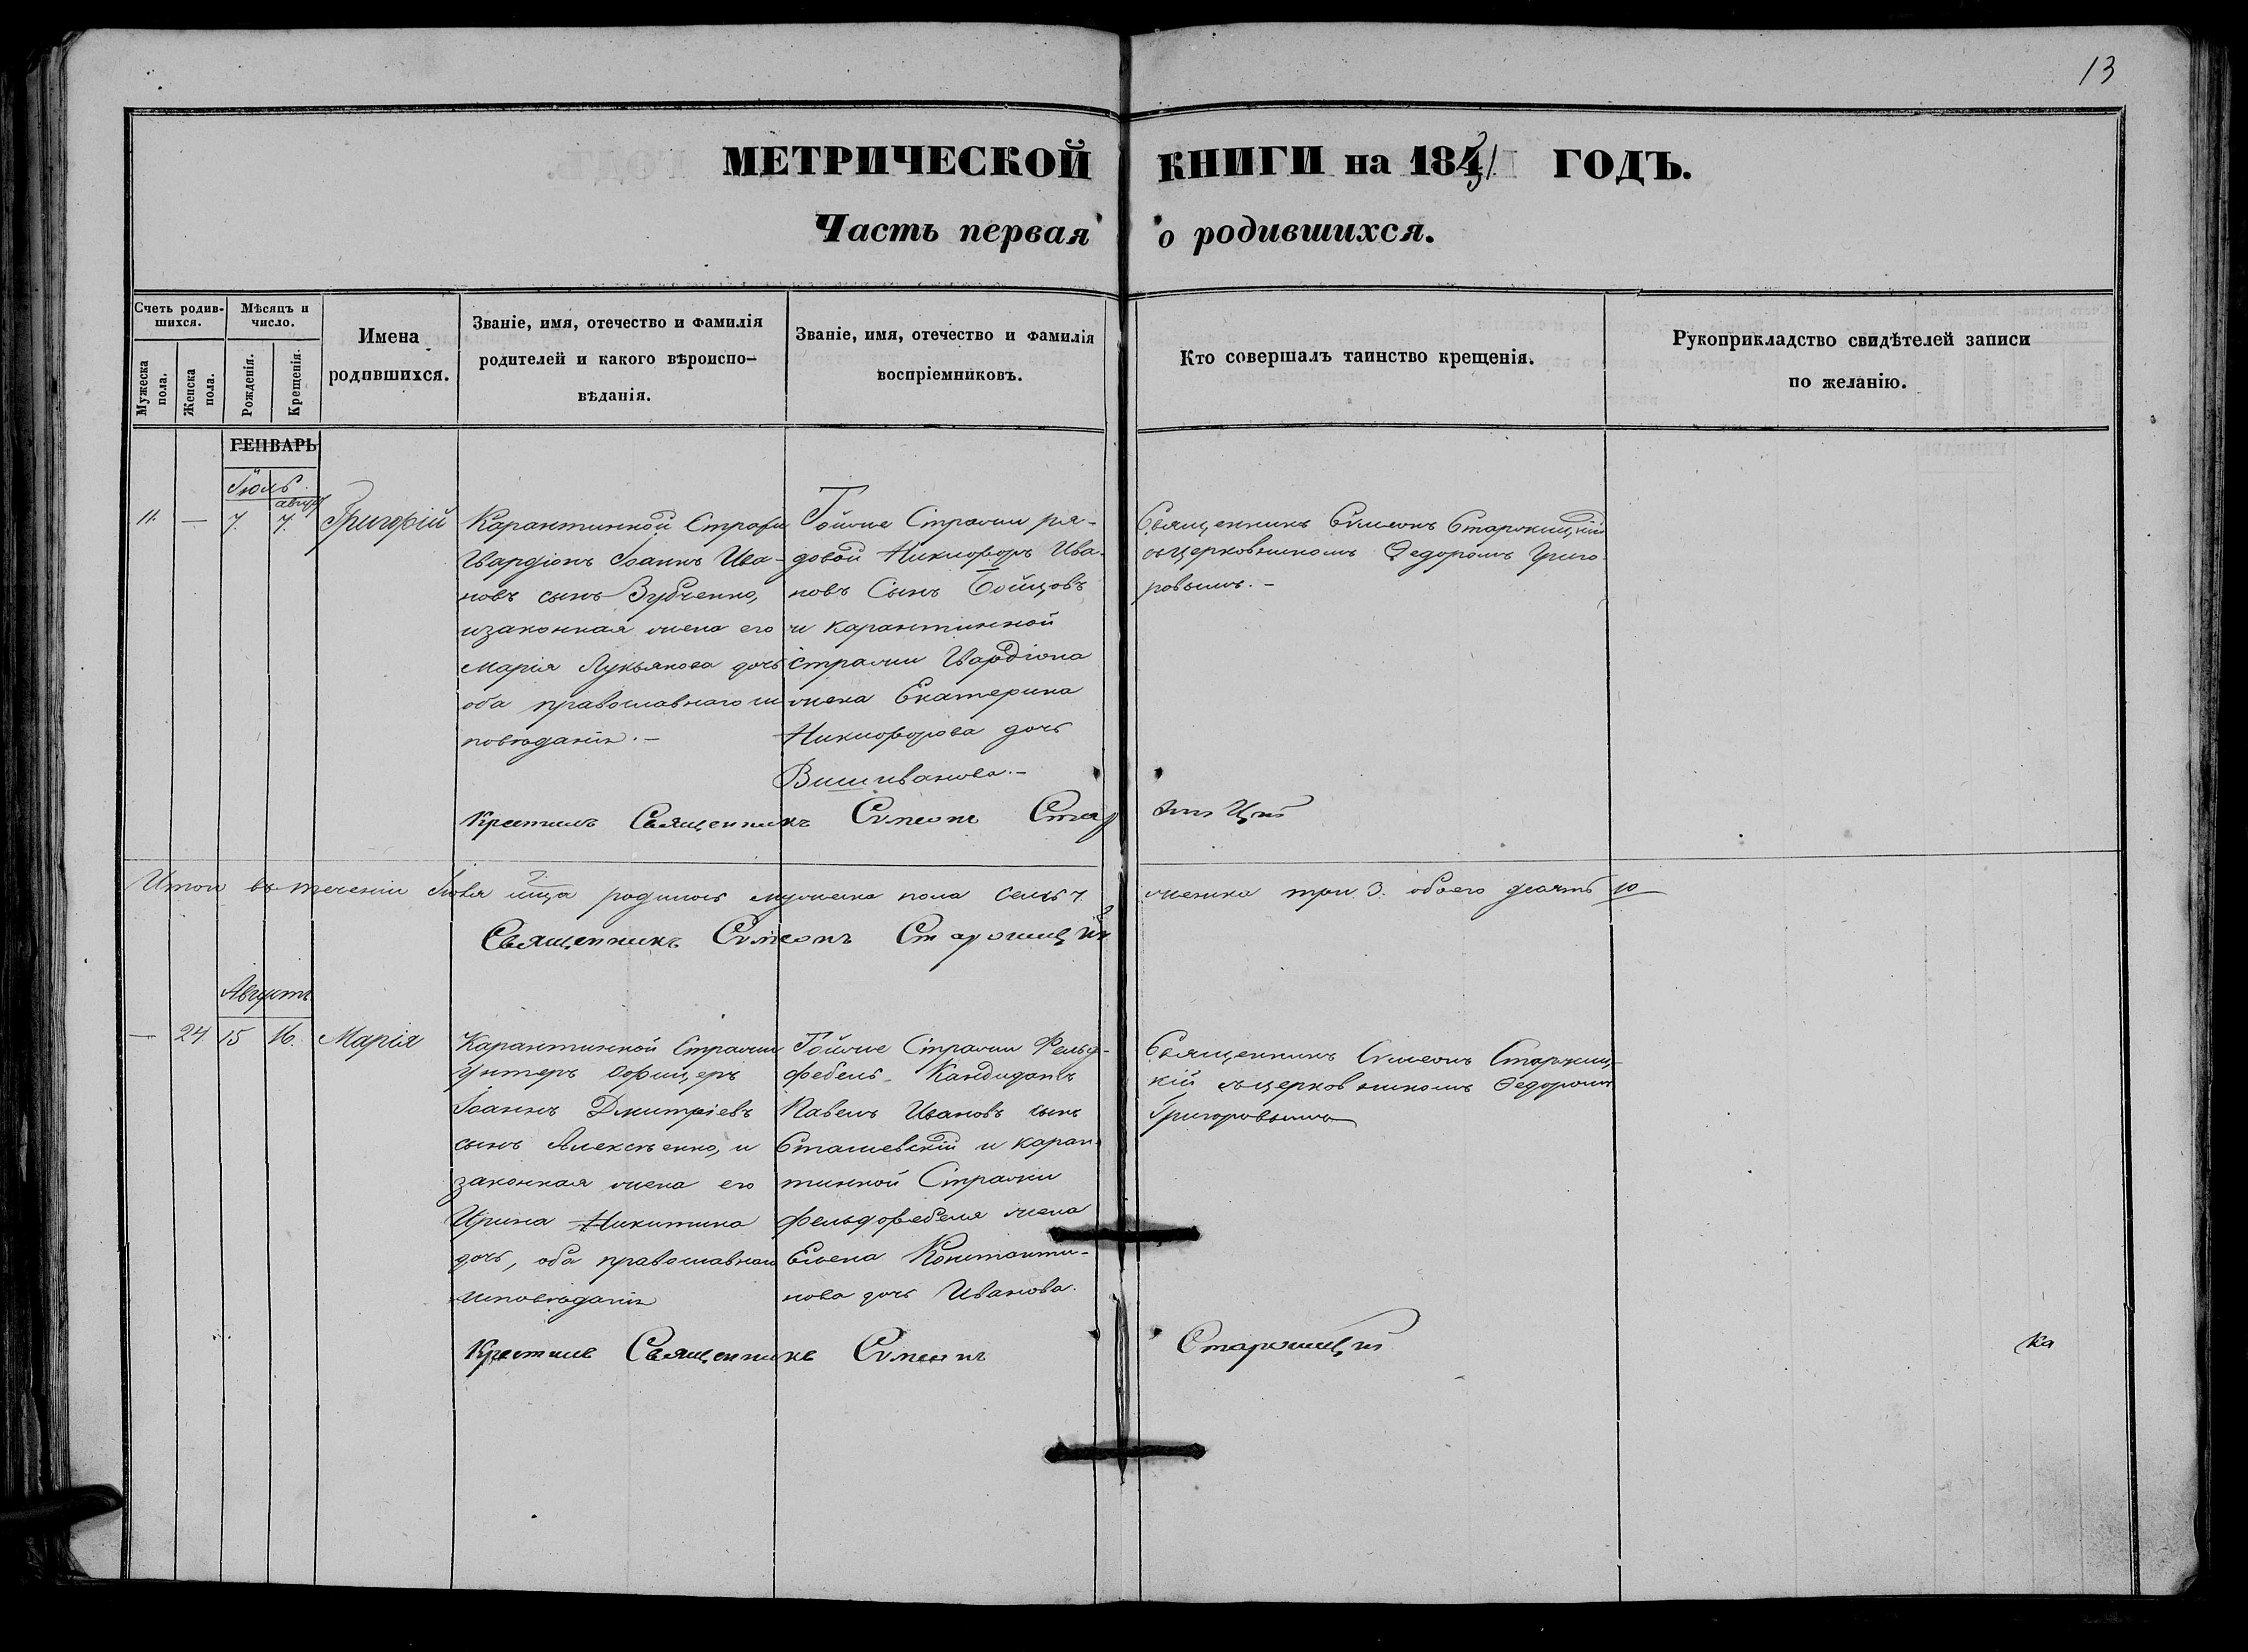 13
МЕТРИЧЕСКОЙ КНИГИ на 1851 ГОДЪ.
Часть первая о родившихся.
Счетъ родив-
шихся.
Мужеска пола.
Женска пола.
Мѣсяцъ и
число.
Рожденія.
Крещенія.
Имена
родившихся.
Званіе, имя, отечество и фамилія
родителей и какого вѣроиспо-
вѣданія.
Званіе, имя, отечество и фамилія
воспріемниковъ.
Кто совершалъ таинство крещенія.
Рукоприкладство свидѣтелей записи
по желанію.
ГЕНВАРЬ
Іюль
август
11. — 7. 7. Григорій
Карантинной Стражи
Гвардіонъ Іоаннъ Ива-
новъ сынъ Зубченко,
изаконная жена его
Марія Лукьянова дочь
оба православнаго ис
повѣданія. —
Тойже Стражи ря-
довой Никифоръ Ива-
новъ Сынъ Бойцовъ
и карантинной
стражи Гвардіона
жена Екатерина
Никифорова дочь
Вишиванова. —
Священникъ Симеонъ Старжицкій
съцерковникомъ Федоромъ Григо
ровымъ. —
Крестилъ Священникъ Симеонъ Стар жицкій
Итого въ теченіи Іюля мца родилось мужеска пола семь 7. женска три 3. обоего десять 10
Священникъ Симеонъ Старжицкій
Августъ
— 24 15 16. Марія
Карантинной Стражи
Унтеръ Офицеръ
Іоаннъ Дмитріевъ
сынъ Алексѣенко, и
законная жена его
Ирина Никитина
дочь, оба православнаго
исповѣданія
Тойже Стражи Фельд-
фебель Кандидатъ
Павелъ Ивановъ сынъ
Сташевскій и каран-
тинной Стражи
фельдфебеля жена
Елена Константи-
нова дочь Иванова.
Священникъ Симеонъ Старжиц-
кій съцерковникомъ Федоромъ
Григоровымъ
Крестилъ Священникъ Симеонъ Старжицкій
ка